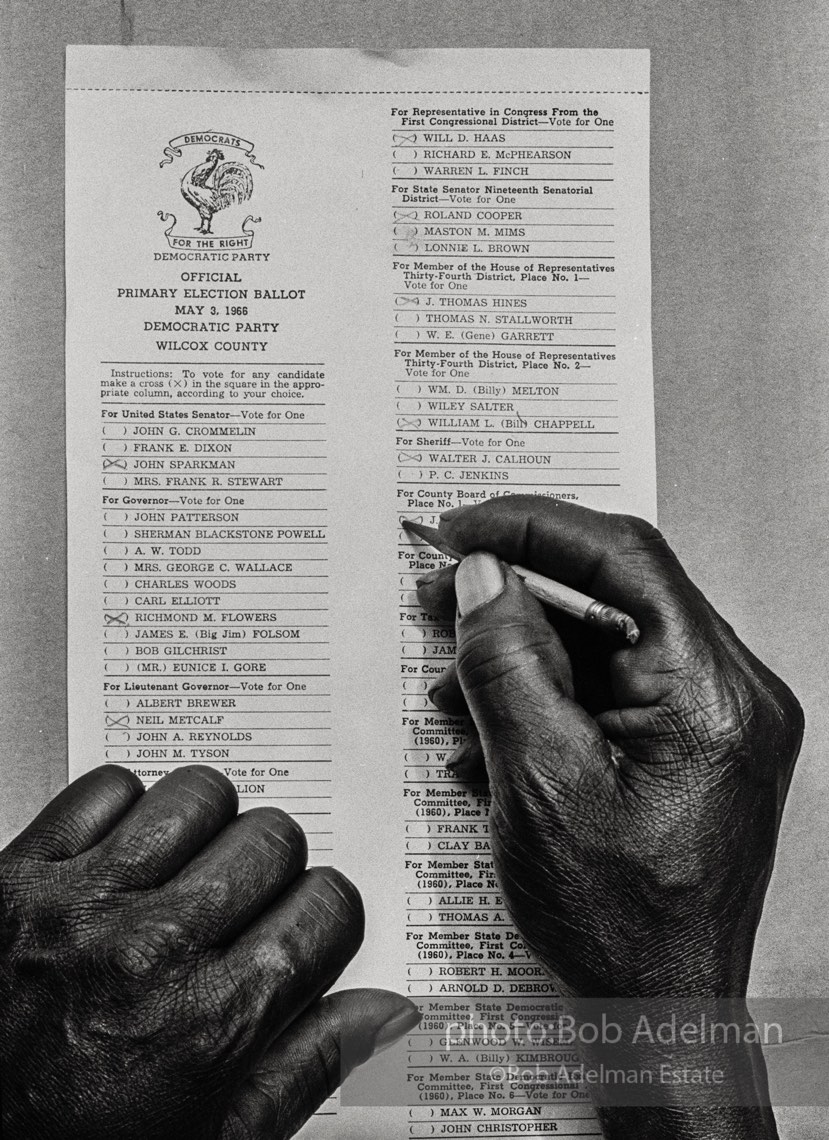 DEMOCRATS
FOR THE RIGHT
DEMOCRATIC PARTY
OFFICIAL
PRIMARY ELECTION BALLOT
MAY 3, 1966
DEMOCRATIC PARTY
WILCOX COUNTY
Instructions: To vote for any candidate
make a cross (X) in the square in the appro-
priate column, according to your choice.
For United States Senator—Vote for One
( ) JOHN G. CROMMELIN
( ) FRANK E. DIXON
(X) JOHN SPARKMAN
( ) MRS. FRANK R. STEWART
For Governor—Vote for One
( ) JOHN PATTERSON
( ) SHERMAN BLACKSTONE POWELL
( ) A. W. TODD
( ) MRS. GEORGE C. WALLACE
( ) CHARLES WOODS
( ) CARL ELLIOTT
(X) RICHMOND M. FLOWERS
( ) JAMES E. (Big Jim) FOLSOM
( ) BOB GILCHRIST
( ) (MR.) EUNICE I. GORE
For Lieutenant Governor—Vote for One
( ) ALBERT BREWER
(X) NEIL METCALF
( ) JOHN A. REYNOLDS
( ) JOHN M. TYSON
ttorney Vote for One
LION
For Representative in Congress From the
First Congressional District—Vote for One
(X) WILL D. HAAS
( ) RICHARD E. McPHEARSON
( ) WARREN L. FINCH
For State Senator Nineteenth Senatorial
District—Vote for One
(X) ROLAND COOPER
( ) MASTON M. MIMS
( ) LONNIE L. BROWN
For Member of the House of Representatives
Thirty-Fourth District, Place No. 1—
Vote for One
(X) J. THOMAS HINES
( ) THOMAS N. STALLWORTH
( ) W. E. (Gene) GARRETT
For Member of the House of Representatives
Thirty-Fourth District, Place No. 2—
Vote for One
( ) WM. D. (Billy) MELTON
( ) WILEY SALTER
(X) WILLIAM L. (Bill) CHAPPELL
For Sheriff—Vote for One
(X) WALTER J. CALHOUN
( ) P. C. JENKINS
For County Board of Commissioners,
Place No. 1
(X) J.
(
For County
Place No
(
(
For Tax
( ) ROB
( ) JAM
For Cour
( )
( )
For Member
Committee,
(1960), Pl
( ) W
( ) TRA
For Member Sta
Committee, Fir
(1960), Place
( ) FRANK T
( ) CLAY BA
For Member Stat
Committee, First
(1960), Place No
( ) ALLIE H. E
( ) THOMAS A.
For Member State De
Committee, First Co
(1960), Place No. 4—V
( ) ROBERT H. MOOR
( ) ARNOLD D. DEBROW
or Member State Democratic
ommittee, First Congressi
(1960), Place No.
( ) GLENWOOD W. WISELL
( ) W. A. (Billy) KIMBROUG
For Member State Democratic
Committee, First Congressional
(1960), Place No. 6—Vote for One
( ) MAX W. MORGAN
( ) JOHN CHRISTOPHER
photo:Bob Adelman
©Bob Adelman Estate